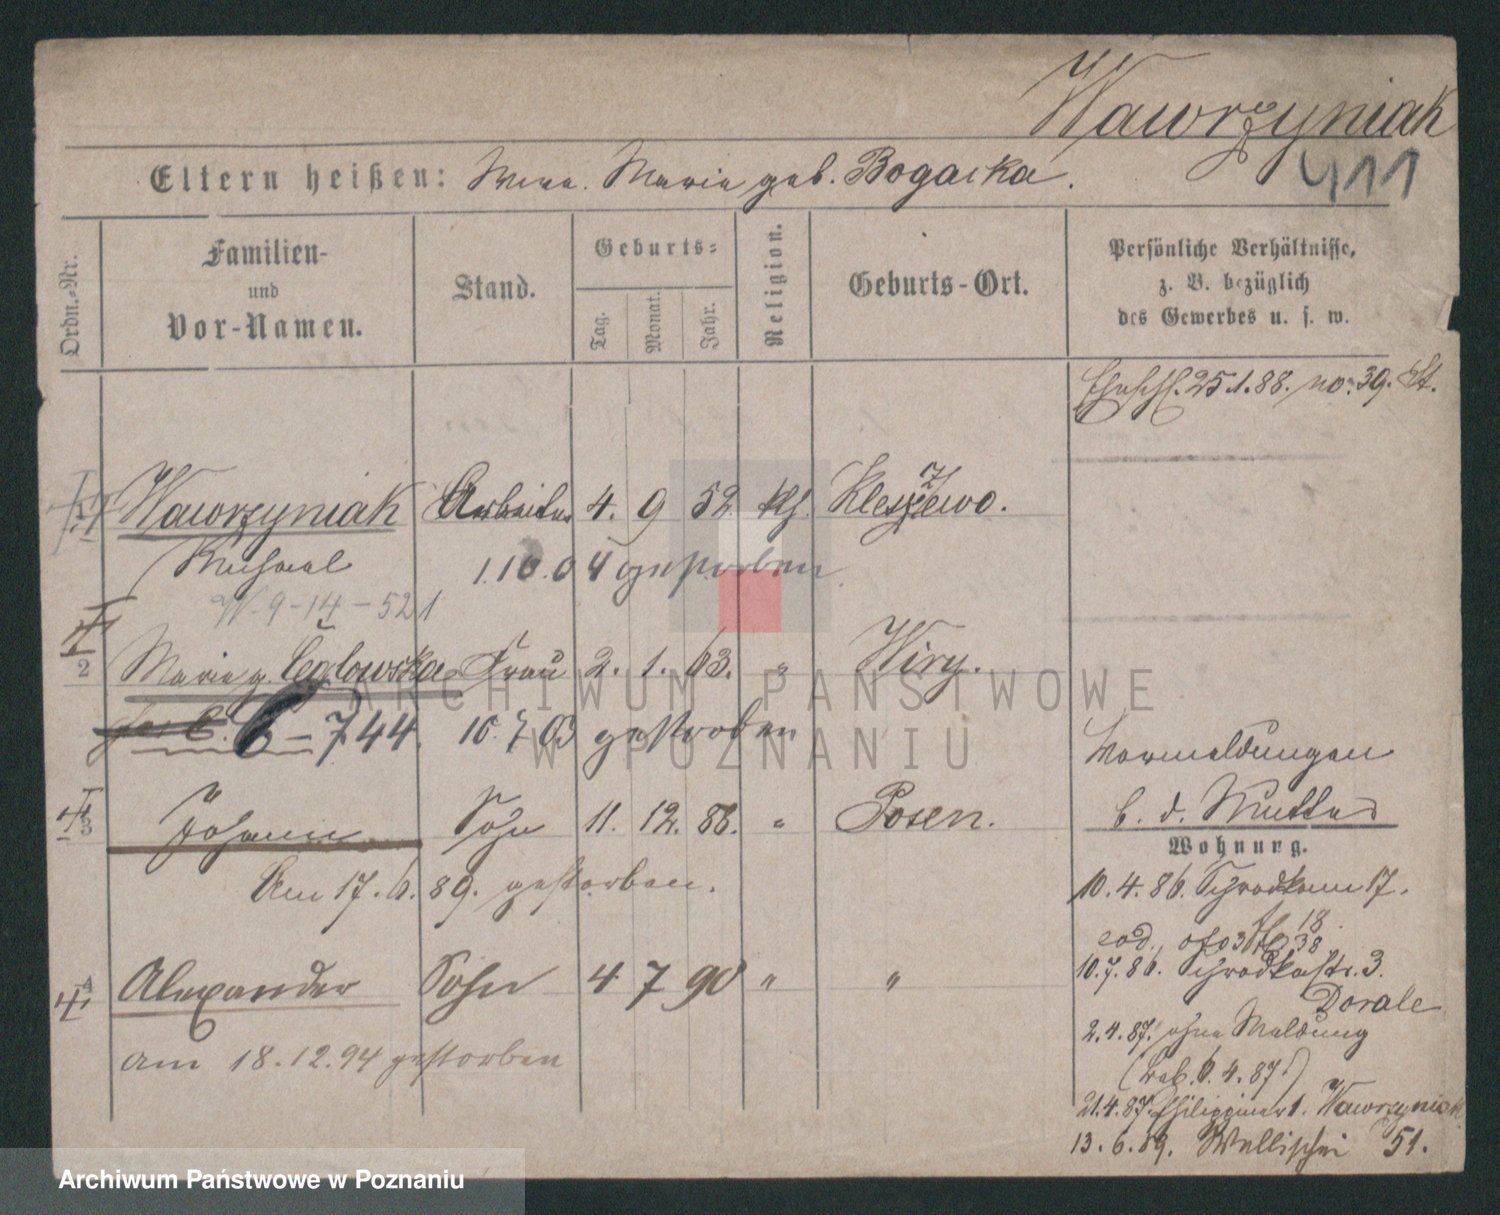 Wawrzyniak
411
Eltern heißen: Maria geb. Bogacka.
Ordn.-Nr.
Familien-
und
Vor-Namen.
Stand.
Geburts-
Tag.
Monat.
Jahr.
Religion.
Geburts-Ort.
Persönliche Verhältnisse,
z. B. bezüglich
des Gewerbes u. s. w.
Eheschl. 25.1.88. no. 39. St.
Wawrzyniak Arbeiter 4. 9 52. kth. Kleszczewo.
Michael 1.10.04 gestorben
W-9-14-521
2 Maria g. Cegłowska Frau 2. 1. 63. " Wiry.
C-744 10.7.03 gestorben
Vormeldungen
b. d. Mutter
3 Johann Sohn 11. 12. 86. " Posen.
Wohnung.
Am 17.6.89. gestorben.
10.4.86. Schrodka 17.
eod. 18
38
10.7.86. Schrodkastr. 3.
4 Alexander Sohn 4 7 90 " "
Dorale
2.4.87. ohne Meldung
am 18.12.94 gestorben
6.4.87.)
21.4.87. Philippiner 1. Wawrzyniak
13.6.89. Wallischei 51.
ARCHIWUM PAŃSTWOWE
W POZNANIU
Archiwum Państwowe w Poznaniu